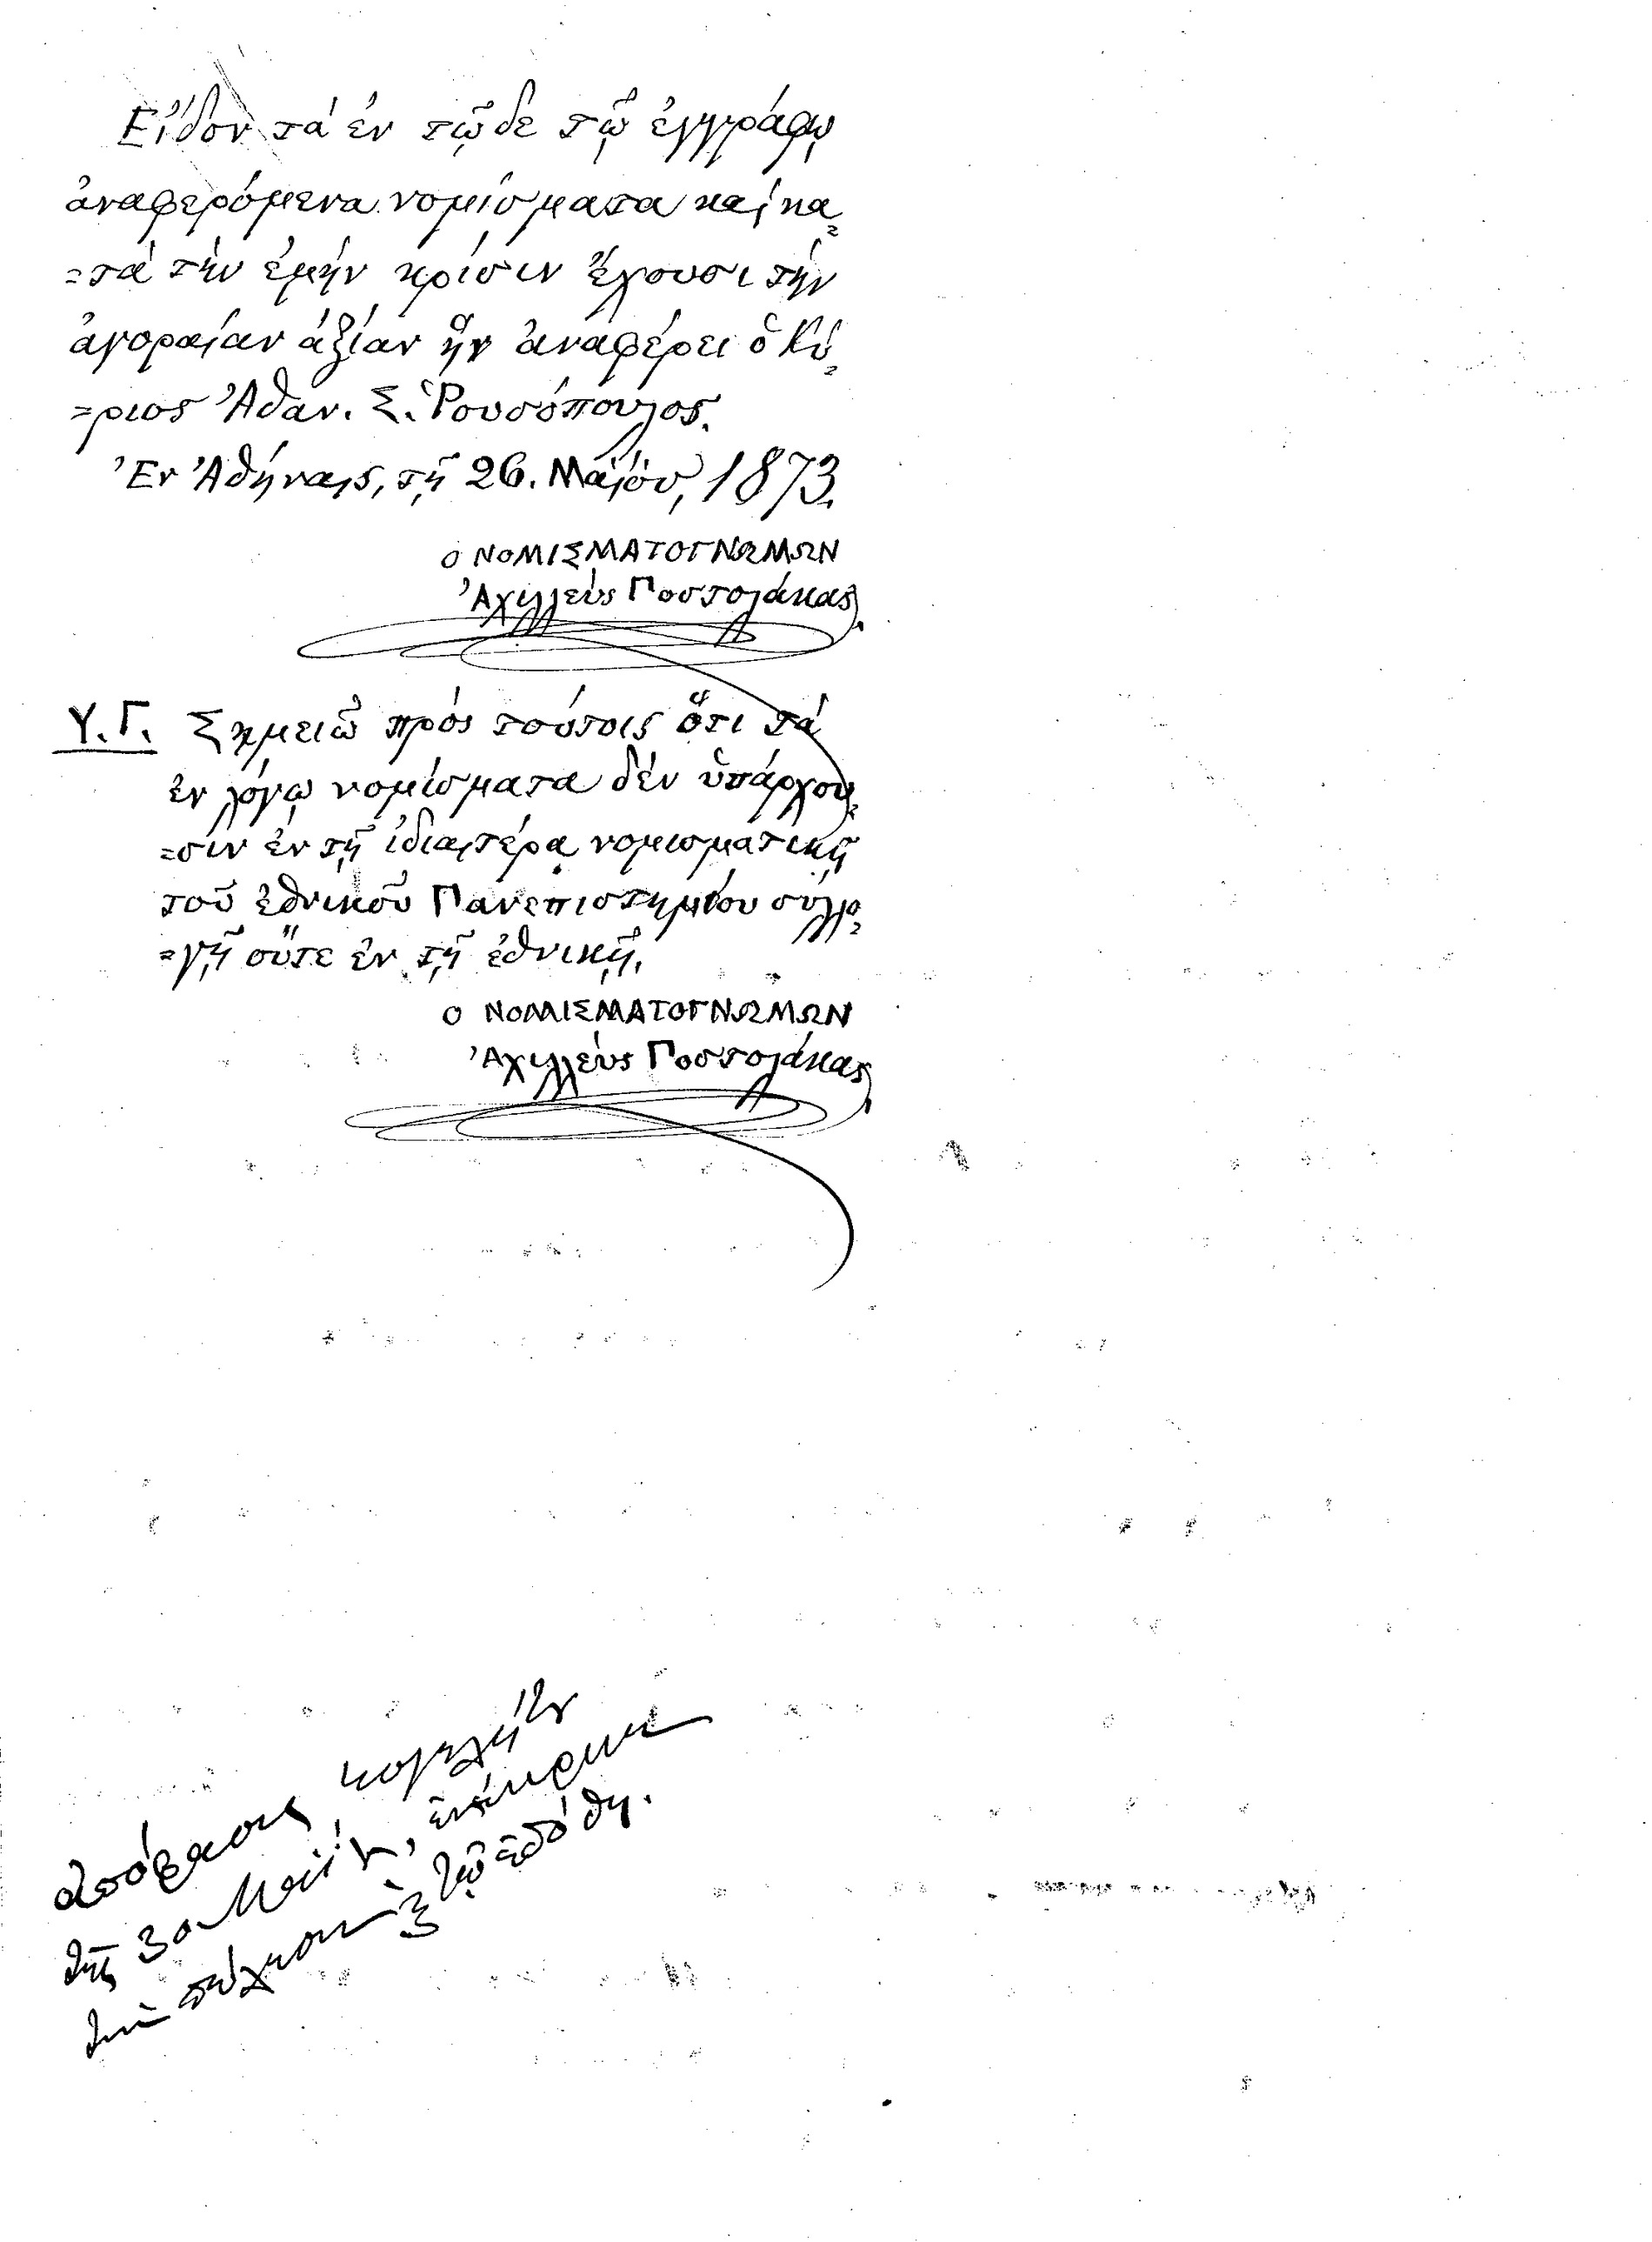 Εἶδον τὰ ἐν τῷδε τῷ ἐγγράφῳ
ἀναφερόμενα νομίσματα καὶ κα=
=τὰ τὴν ἐμὴν κρίσιν ἔχουσι τὴν
ἀγοραίαν ἀξίαν ἣν ἀναφέρει ὁ Κύ=
=ριος Ἀθαν. Σ. Ῥουσόπουλος.
Ἐν Ἀθήναις, τῇ 26. Μαΐου, 1873.
Ο ΝΟΜΙΣΜΑΤΟΓΝΩΜΩΝ
Ἀχιλλεὺς Ποστολάκας.
Υ.Γ. Σημειῶ πρὸς τούτοις ὅτι τὰ
ἐν λόγῳ νομίσματα δὲν ὑπάρχου=
=σιν ἐν τῇ ἰδιαιτέρᾳ νομισματικῇ
τοῦ ἐθνικοῦ Πανεπιστημίου συλλο=
=γῇ οὔτε ἐν τῇ ἐθνικῇ.
Ο ΝΟΜΙΣΜΑΤΟΓΝΩΜΩΝ
Ἀχιλλεὺς Ποστολάκας.
ἀπόφασις
τῆς 30 Μαΐου, ἐνέκρινε
τὴν